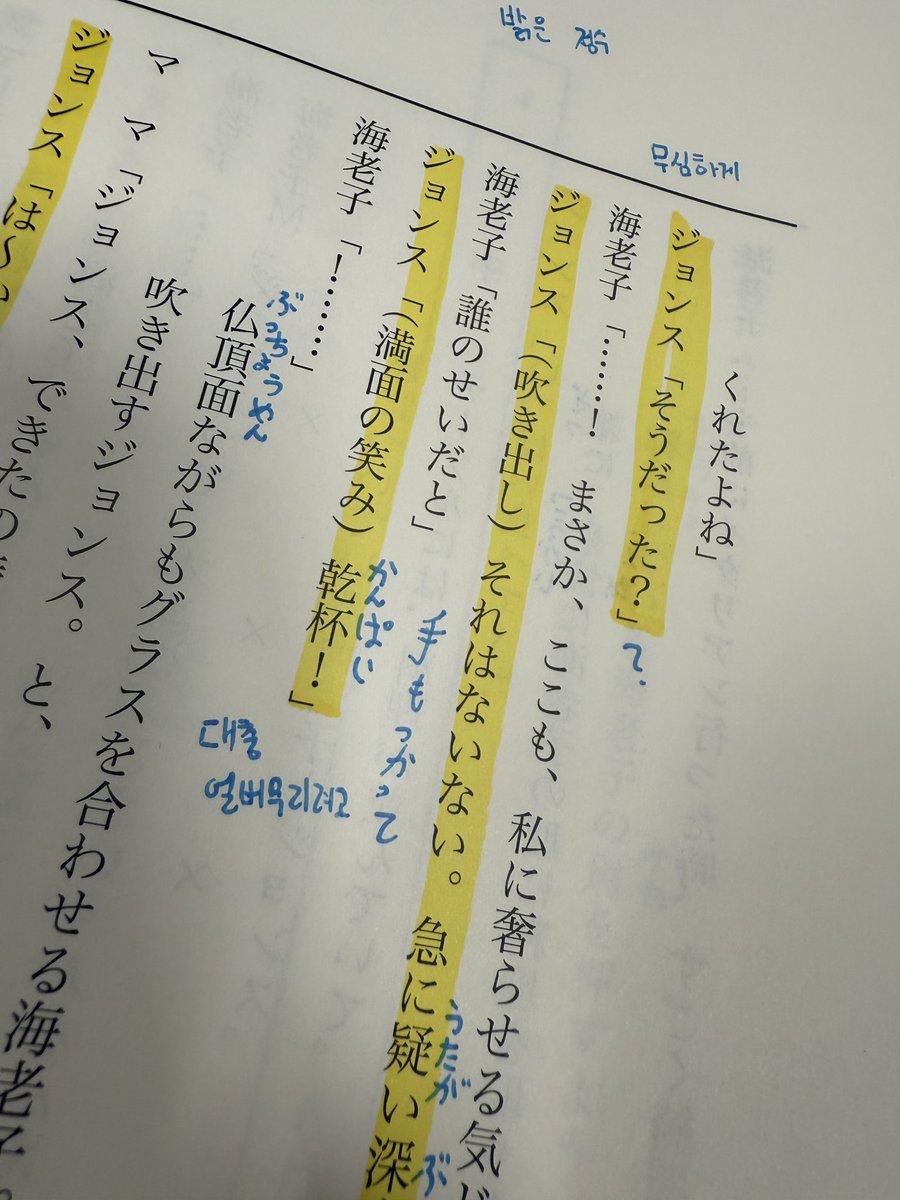 밝은 정수
무심하게
くれたよね」
ジョンス「そうだった?」
て.
海老子「……! まさか、ここも、私に奢らせる気
ジョンス「(吹き出し)それはないない。急に疑い深
うたが ぶ
海老子「誰のせいだと」
手もつかって
ジョンス「(満面の笑み)乾杯!」
かんぱい
대충
얼버무리려고
海老子「!……」
仏頂面ながらもグラスを合わせる海老子。
ぶっちょうやん
吹き出すジョンス。と、
マ マ「ジョンス、できたの
ジョンス「は〜い